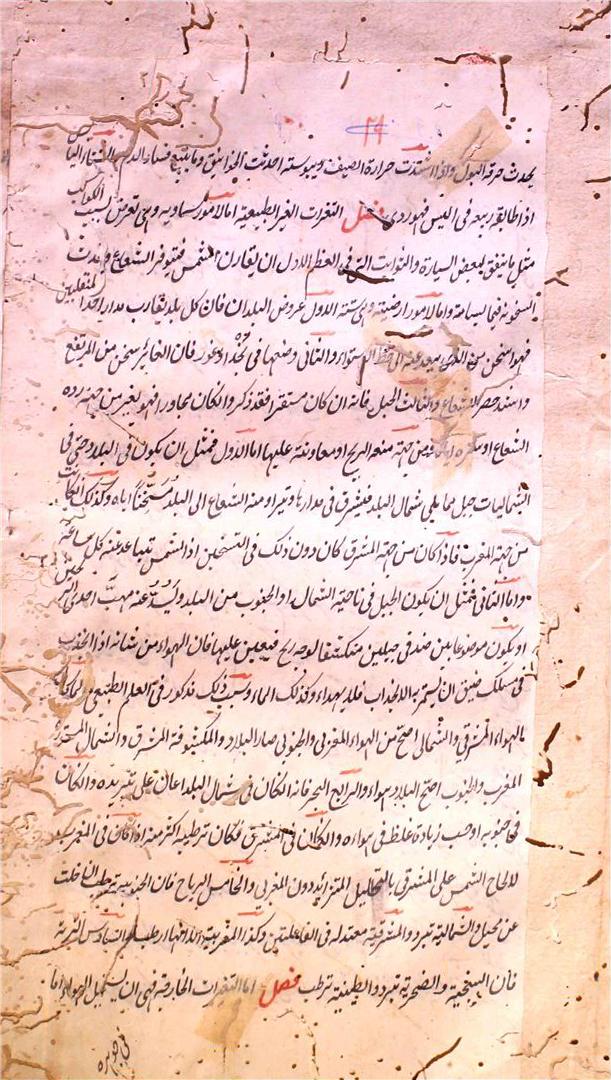 ٢٩
يحدث حرقة البول واذا اشتدت حرارة الصيف ويبوسته احدثت الخوانيق وما يتبع فساد الدم
اذا طالقه ربيعه فى اليبس فهو ردى فصل التغيرات الغير الطبيعية اما لامور سماويه وهى تعرض بسبب الكواكب
مثل ما يتفق لبعض السيارة والثوابت التى فى العظم الاول ان تقارن الشمس فتوفر الشعاع
السخونة فيما يسامته واما لامور ارضية وهى ستة الاول عروض البلدان فان كل بلد يقارب مداره احد المنقلبين
فهو اسخن من الذى يبعد عنه الى خط الاستواء والثانى وضعها فى نجد او غور فان الغائر سخن من المرتفع
الشعاع والثالث الجبل فانه ان كان مستقرا فقد ذكر وان كان مجاورا فهو يغير من جهة رده
الشعاع او ستره اياه ومن جهة منعه الريح او معاونته عليها اما الاول فمثل ان يكون فى البلد وحتى فى
الشماليات جبل مما يلى شمال البلد فيشرق فى مدارها وتيراد منه الشعاع الى البلد مسخنا اياه وكذلك ان كان
من جهة المغرب فاذا كان من جهة المشرق كان دون ذلك فى التسخين اذ الشمس تتباعد عنه كل ساعة
واما الثانى فمثل ان يكون الجبل فى ناحية الشمال او الجنوب من البلد وليسد عنه مهب احدى
او يكون موضوعا بين صدفى جبلين منكشفا لوجه ريح فيعين عليها فان الهواء من شانه اذا انجذب
فى مسلك ضيق ان يستمر به الانجذاب فلا يهداء وكذلك الماء وسبب ذلك مذكور فى العلم الطبيعى ولما كان
الهواء المشرقى والشمالى اصح من الهواء المغربى والجنوبى صار البلاد المكشوفة المشرق والشمال المستورة
المغرب والجنوب اصح البلاد هواء والرابع البحر فانه ان كان فى شمال البلد اعان على تبريده وان كان
فى جنوبه اوجب زيادة غلظ فى هواءه وان كان فى المشرق فكان ترطيبه اكثر منه اذا كان فى المغرب
لالحاح الشمس على المشرقى بالتحليل المتزائد دون المغربى والخامس الرياح فان الجنوبية ترطب
والشمالية تبرد والمشرقية معتدلة فى الفاعلتين وكذا المغربية الا انها ارطب السادس التربة
فان السبخية والصخرية تبرد والطينية ترطب فصل اما التغيرات الخارقة فهى ان يستحيل الهواء اما
فى جوهره